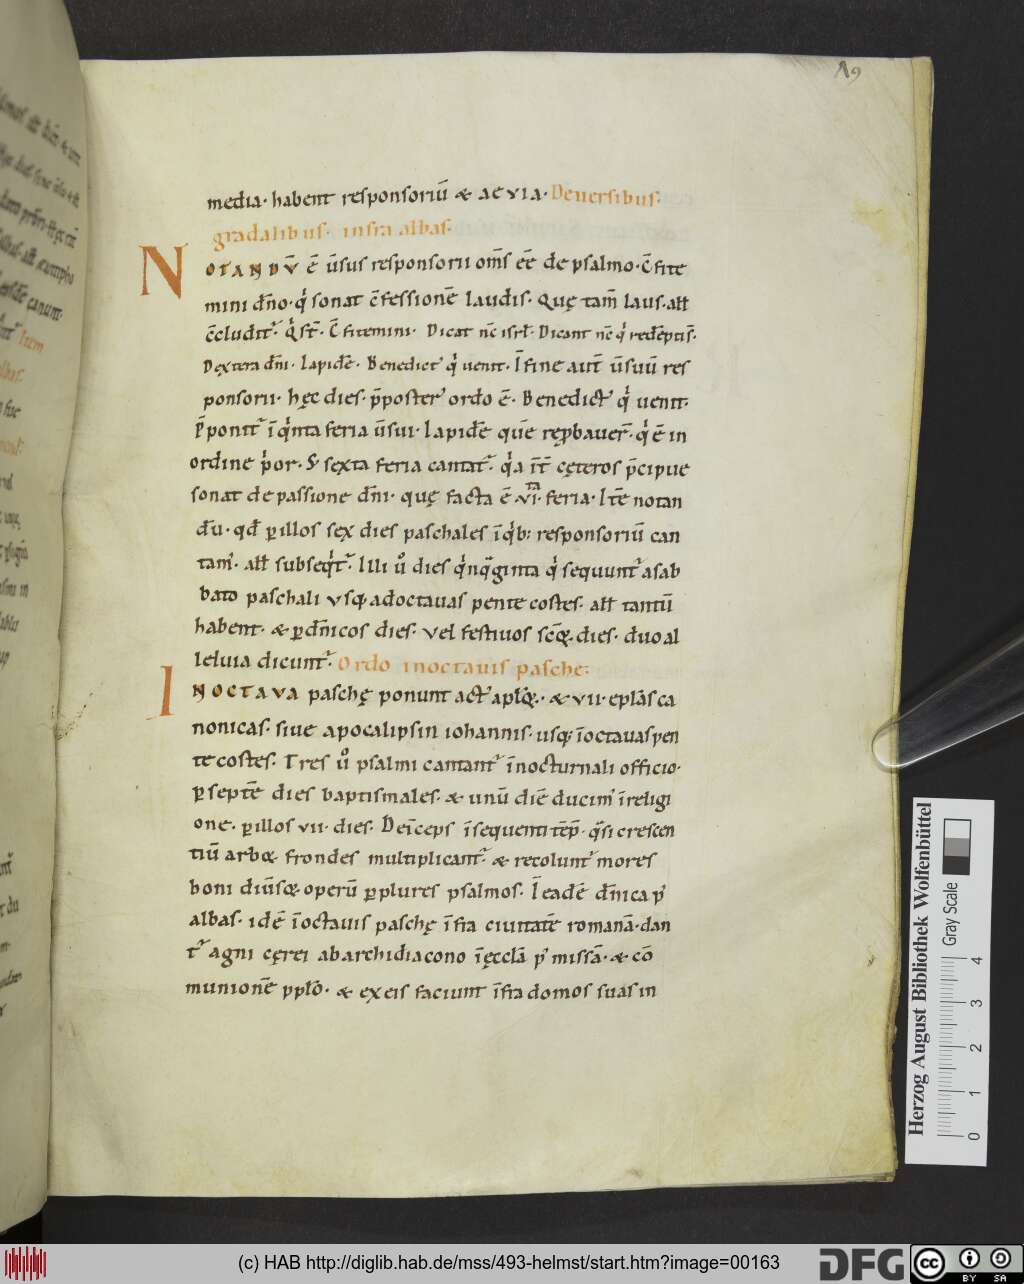 A9
media· habent responsoriū & aevia· De versibus·
gradalibus· infra albas·
NOTANDV̄ ē ūsus responsorii om̄s eē de psalmo· C̄fite
mini dn̄o· q̇ sonat c̄fessionē laudis· Quę tam̄ laus· all̄
c̄cludit᷑· q̇ st̄· C̄fitemini· Dicat nc̄ isrł· Dicant nc̄ q̇ redēpti s̄·
Dextera dn̄i· Lapidē· Benedict᷒ q̇ uenit· Ī fine aut̄ ūsuū res
ponsorii· hęc dies· p̄poster᷒ ordo ē· Benedict᷒ q̇ uenit·
P̄ponit᷑ ī q̇nta feria ūsui· lapidē quē rep̱bauer̄· q̇ ē in
ordine p̓or· S; sexta feria cantat᷑· q̇a īt̄ cęteros p̄cipue
sonat de passione dn̄i· quę facta ē vi· feria· Itē notan
dū· qd̄ p̱ illos sex dies paschales ī q̇b; responsoriū can
tam᷒· all̄ subseq̇t᷑· Illi ů dies q̇nq̄ginta q̇ sequunt᷑ a sab
bato paschali vsq; ad octauas pentecostes· all̄ tantū
habent· & p̱ dn̄icos dies· vel festiuos sc̄oꝝ dies· duo al
leluia dicunt᷑· Ordo in octauis pasche:
IN OCTAVA paschę ponunt act᷒ aplōꝝ· & vii· eplās ca
nonicas· siue apocalipsin iohannis· usq; ī octauas pen
tecostes· Tres ů psalmi cantant᷑ ī nocturnali officio·
p̱ septē dies baptismales· & unū diē ducim᷒ ī religi
one· p̱ illos vii· dies· Deīceps ī sequenti tēp̄· q̄si crescen
tiū arboꝝ frondes multiplicant᷑· & recolunt᷑ mores
boni diūsoꝝ operū p̱ plures psalmos· Ī eadē dn̄ica p᷒
albas· idē ī octauis paschę īfra ciuitatē romanā· dan
t᷑ agni cęrei ab archidiacono ī ęcclā p᷒ missā· & cō
munionē pplō· & ex eis faciunt īfra domos suas in
Herzog August Bibliothek Wolfenbüttel
Gray Scale
0 1 2 3 4
(c) HAB http://diglib.hab.de/mss/493-helmst/start.htm?image=00163
DFG
cc BY SA